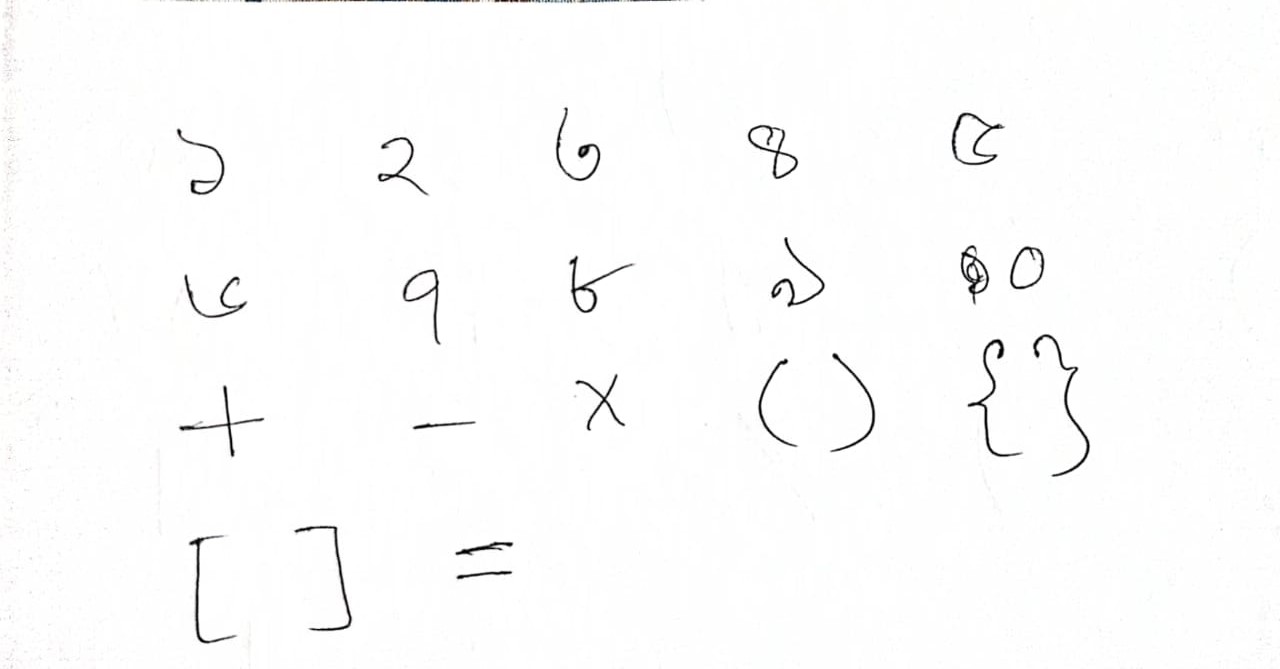 ১ ২ ৩ ৪ ৫
৬ ৭ ৮ ৯ ০
+ - × ( ) { }
[ ] =